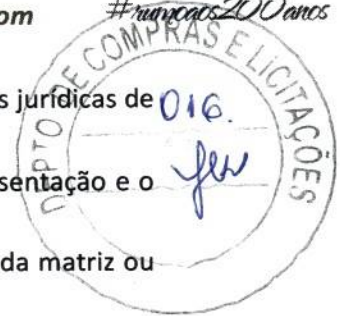 om #rumoaos200anos
DEPTO DE COMPRAS E LICITAÇÕES
s jurídicas de 016.
sentação e o
da matriz ou